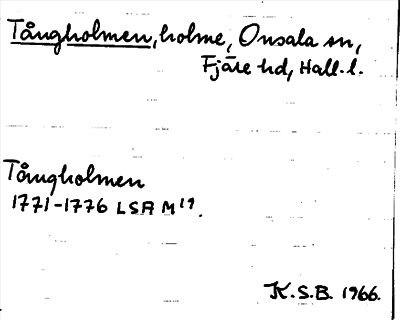 Tångholmen, holme, Onsala sn,
Fjäre hd, Hall. l.
Tångholmen
1771-1776 LSA M19.
K.S.B. 1966.